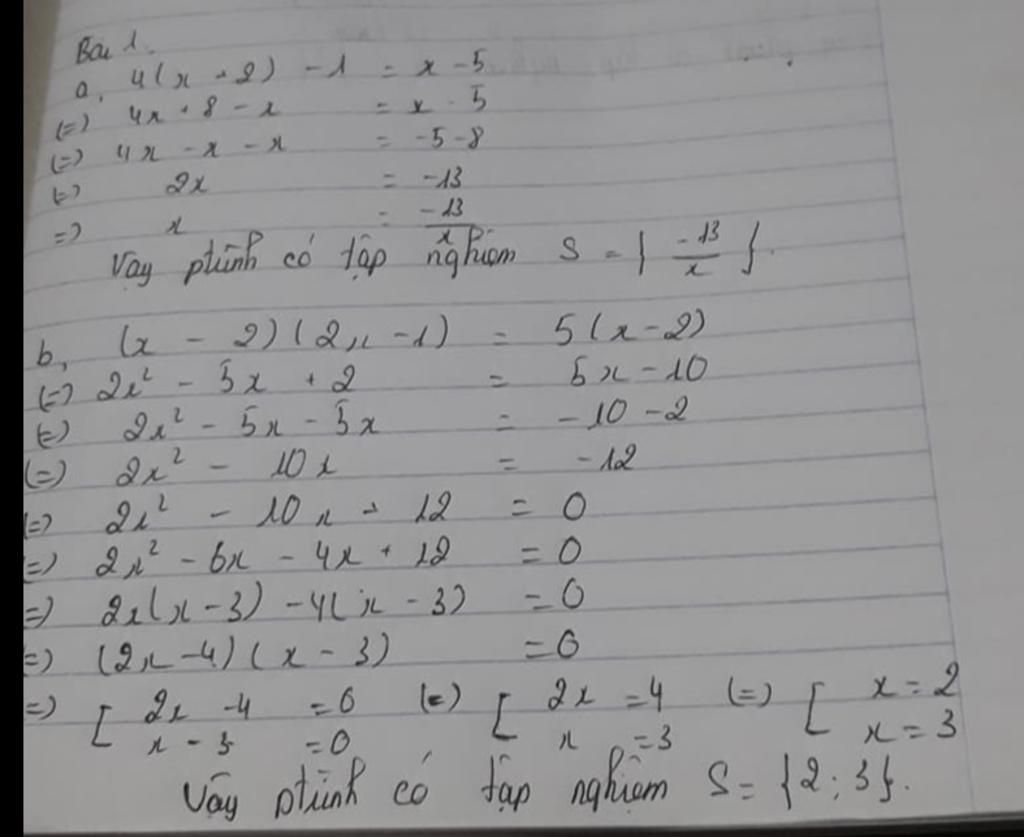 Bài 1.
a, 4(x + 2) - 1 = x - 5
(=) 4x + 8 - x = x - 5
(=) 4x - x - x = -5 - 8
(=) 2x = -13
=) x = \frac{-13}{x}
Vậy ptrình có tập nghiệm S = { \frac{-13}{x} }.
b, (x - 2)(2x - 1) = 5(x - 2)
(=) 2x² - 5x + 2 = 5x - 10
(=) 2x² - 5x - 5x = -10 - 2
(=) 2x² - 10x = -12
(=) 2x² - 10x + 12 = 0
=) 2x² - 6x - 4x + 12 = 0
=) 2x(x - 3) - 4(x - 3) = 0
=) (2x - 4)(x - 3) = 0
=) [ 2x - 4 = 0 (=) [ 2x = 4 (=) [ x = 2
x - 3 = 0 x = 3 x = 3
Vậy ptrình có tập nghiệm S = {2; 3}.